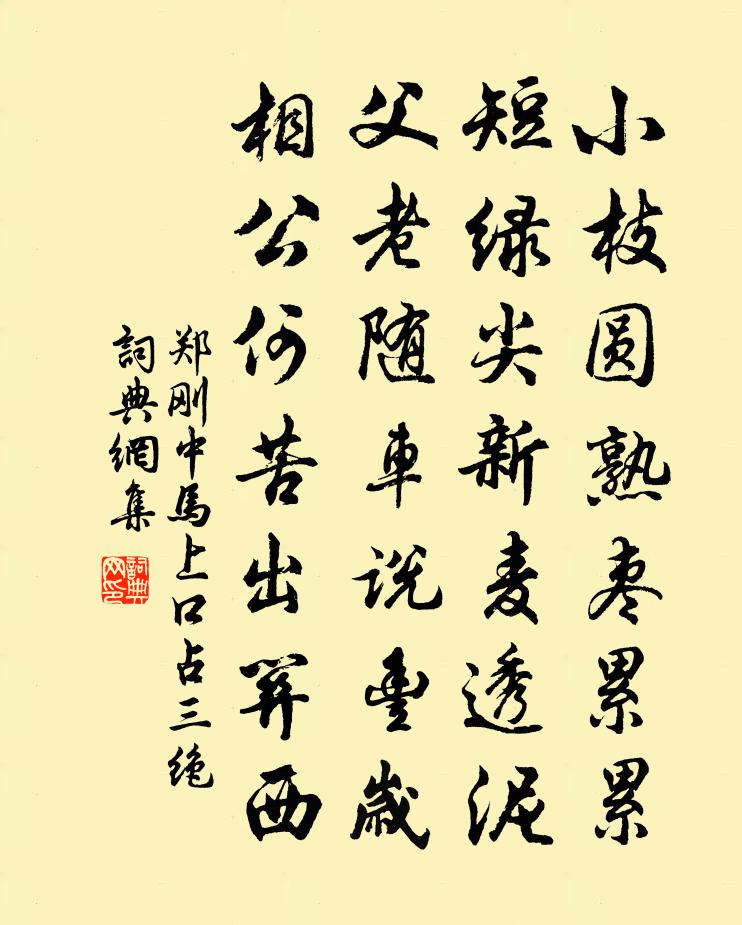 小枝圆熟枣累累
短绿尖新麦透泥
父老随車说豊歲
相公何苦出關西
郑刚中馬上口占三绝
詞典網集
詞典網印